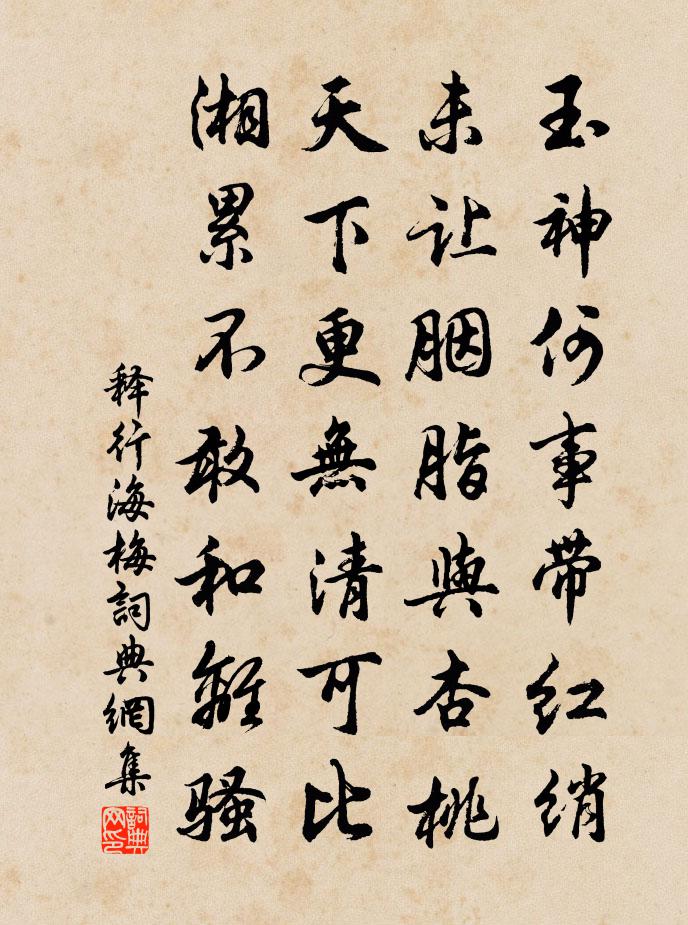 玉神何事带红绡
未让胭脂與杏桃
天下更無清可比
湘累不敢和離骚
释行海梅詞典網集
詞典网印